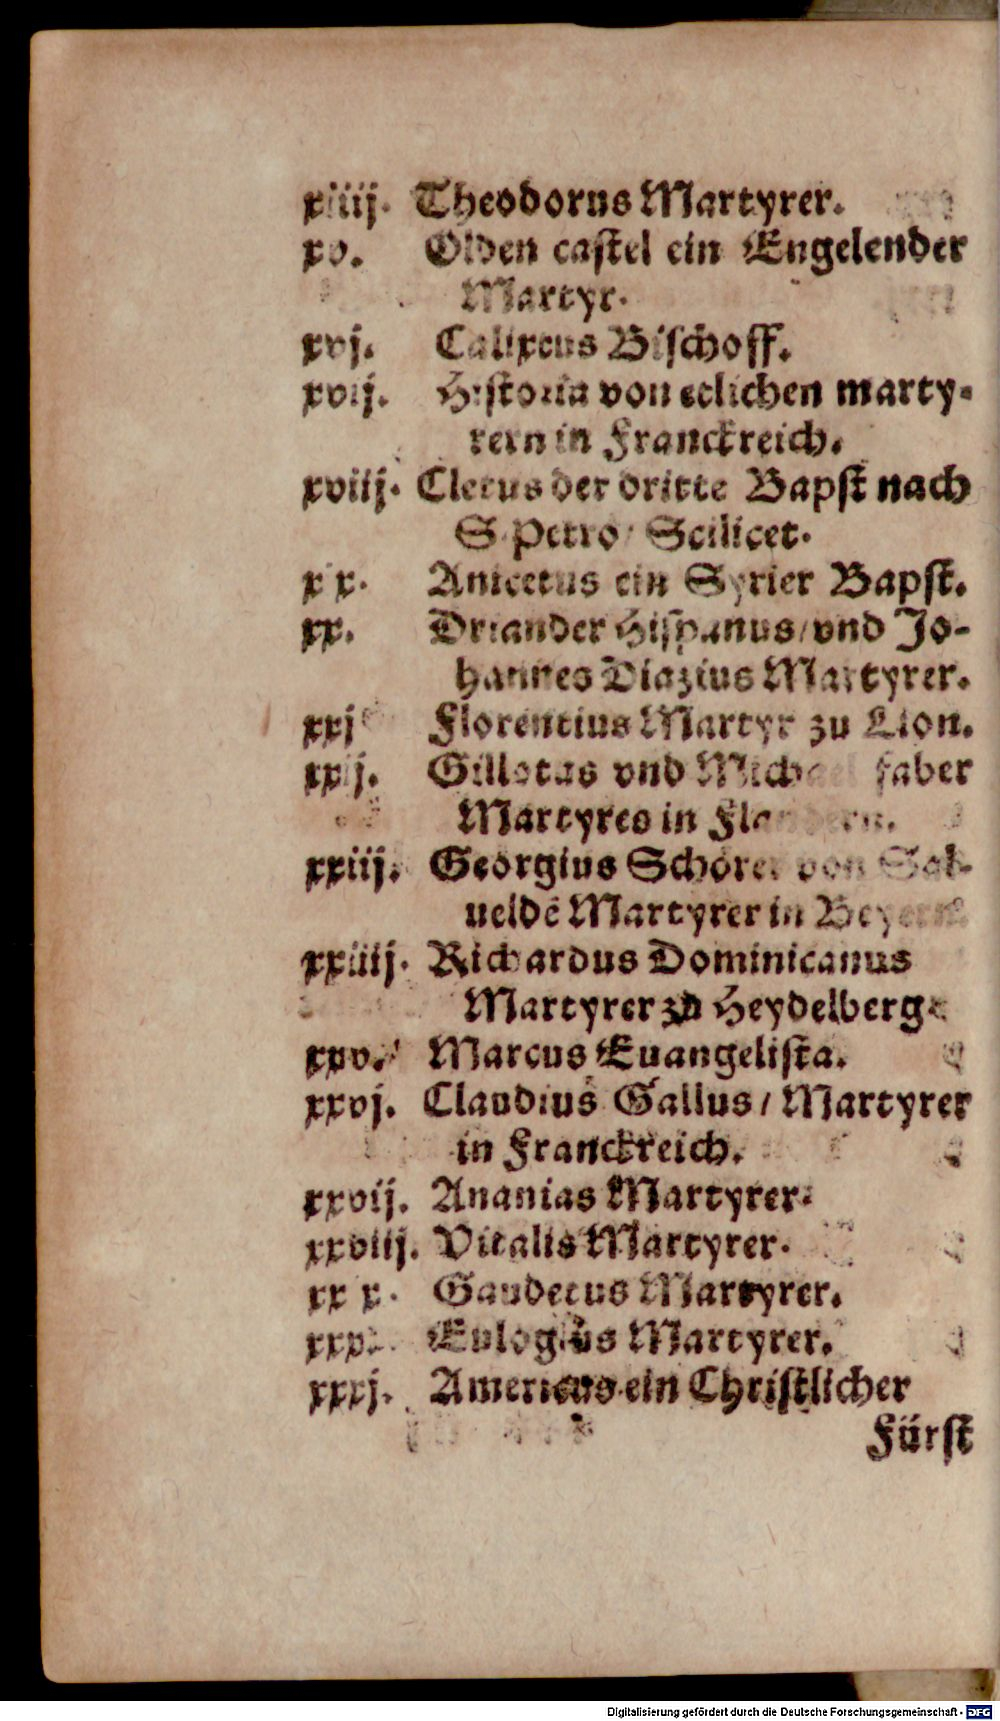 xiiij. Theodorus Martyrer.
xv. Olden castel ein Engelender
Martyr.
xvj. Calixtus Bischoff.
xvij. Historia von etlichen marty-
rern in Franckreich.
xviij. Cletus der dritte Bapst nach
S. Petro / Scilicet.
xix. Anicetus ein Syrier Bapst.
xx. Driander Hispanus / vnd Jo-
hannes Diazius Martyrer.
xxj Florentius Martyr zu Lion.
xxij. Gillotus vnd Michael faber
Martyres in Flandern.
xxiij. Georgius Schörer von Sal-
ueldē Martyrer in Beyern.
xxiiij. Richardus Dominicanus
Martyrer zu Heydelberg.
xxv. Marcus Euangelista.
xxvj. Claudius Gallus / Martyrer
in Franckreich.
xxvij. Ananias Martyrer.
xxviij. Vitalis Martyrer.
xxix. Gaudetus Martyrer.
xxx. Eulogius Martyrer.
xxxj. Americus ein Christlicher
Fürst
Digitalisierung gefördert durch die Deutsche Forschungsgemeinschaft - DFG